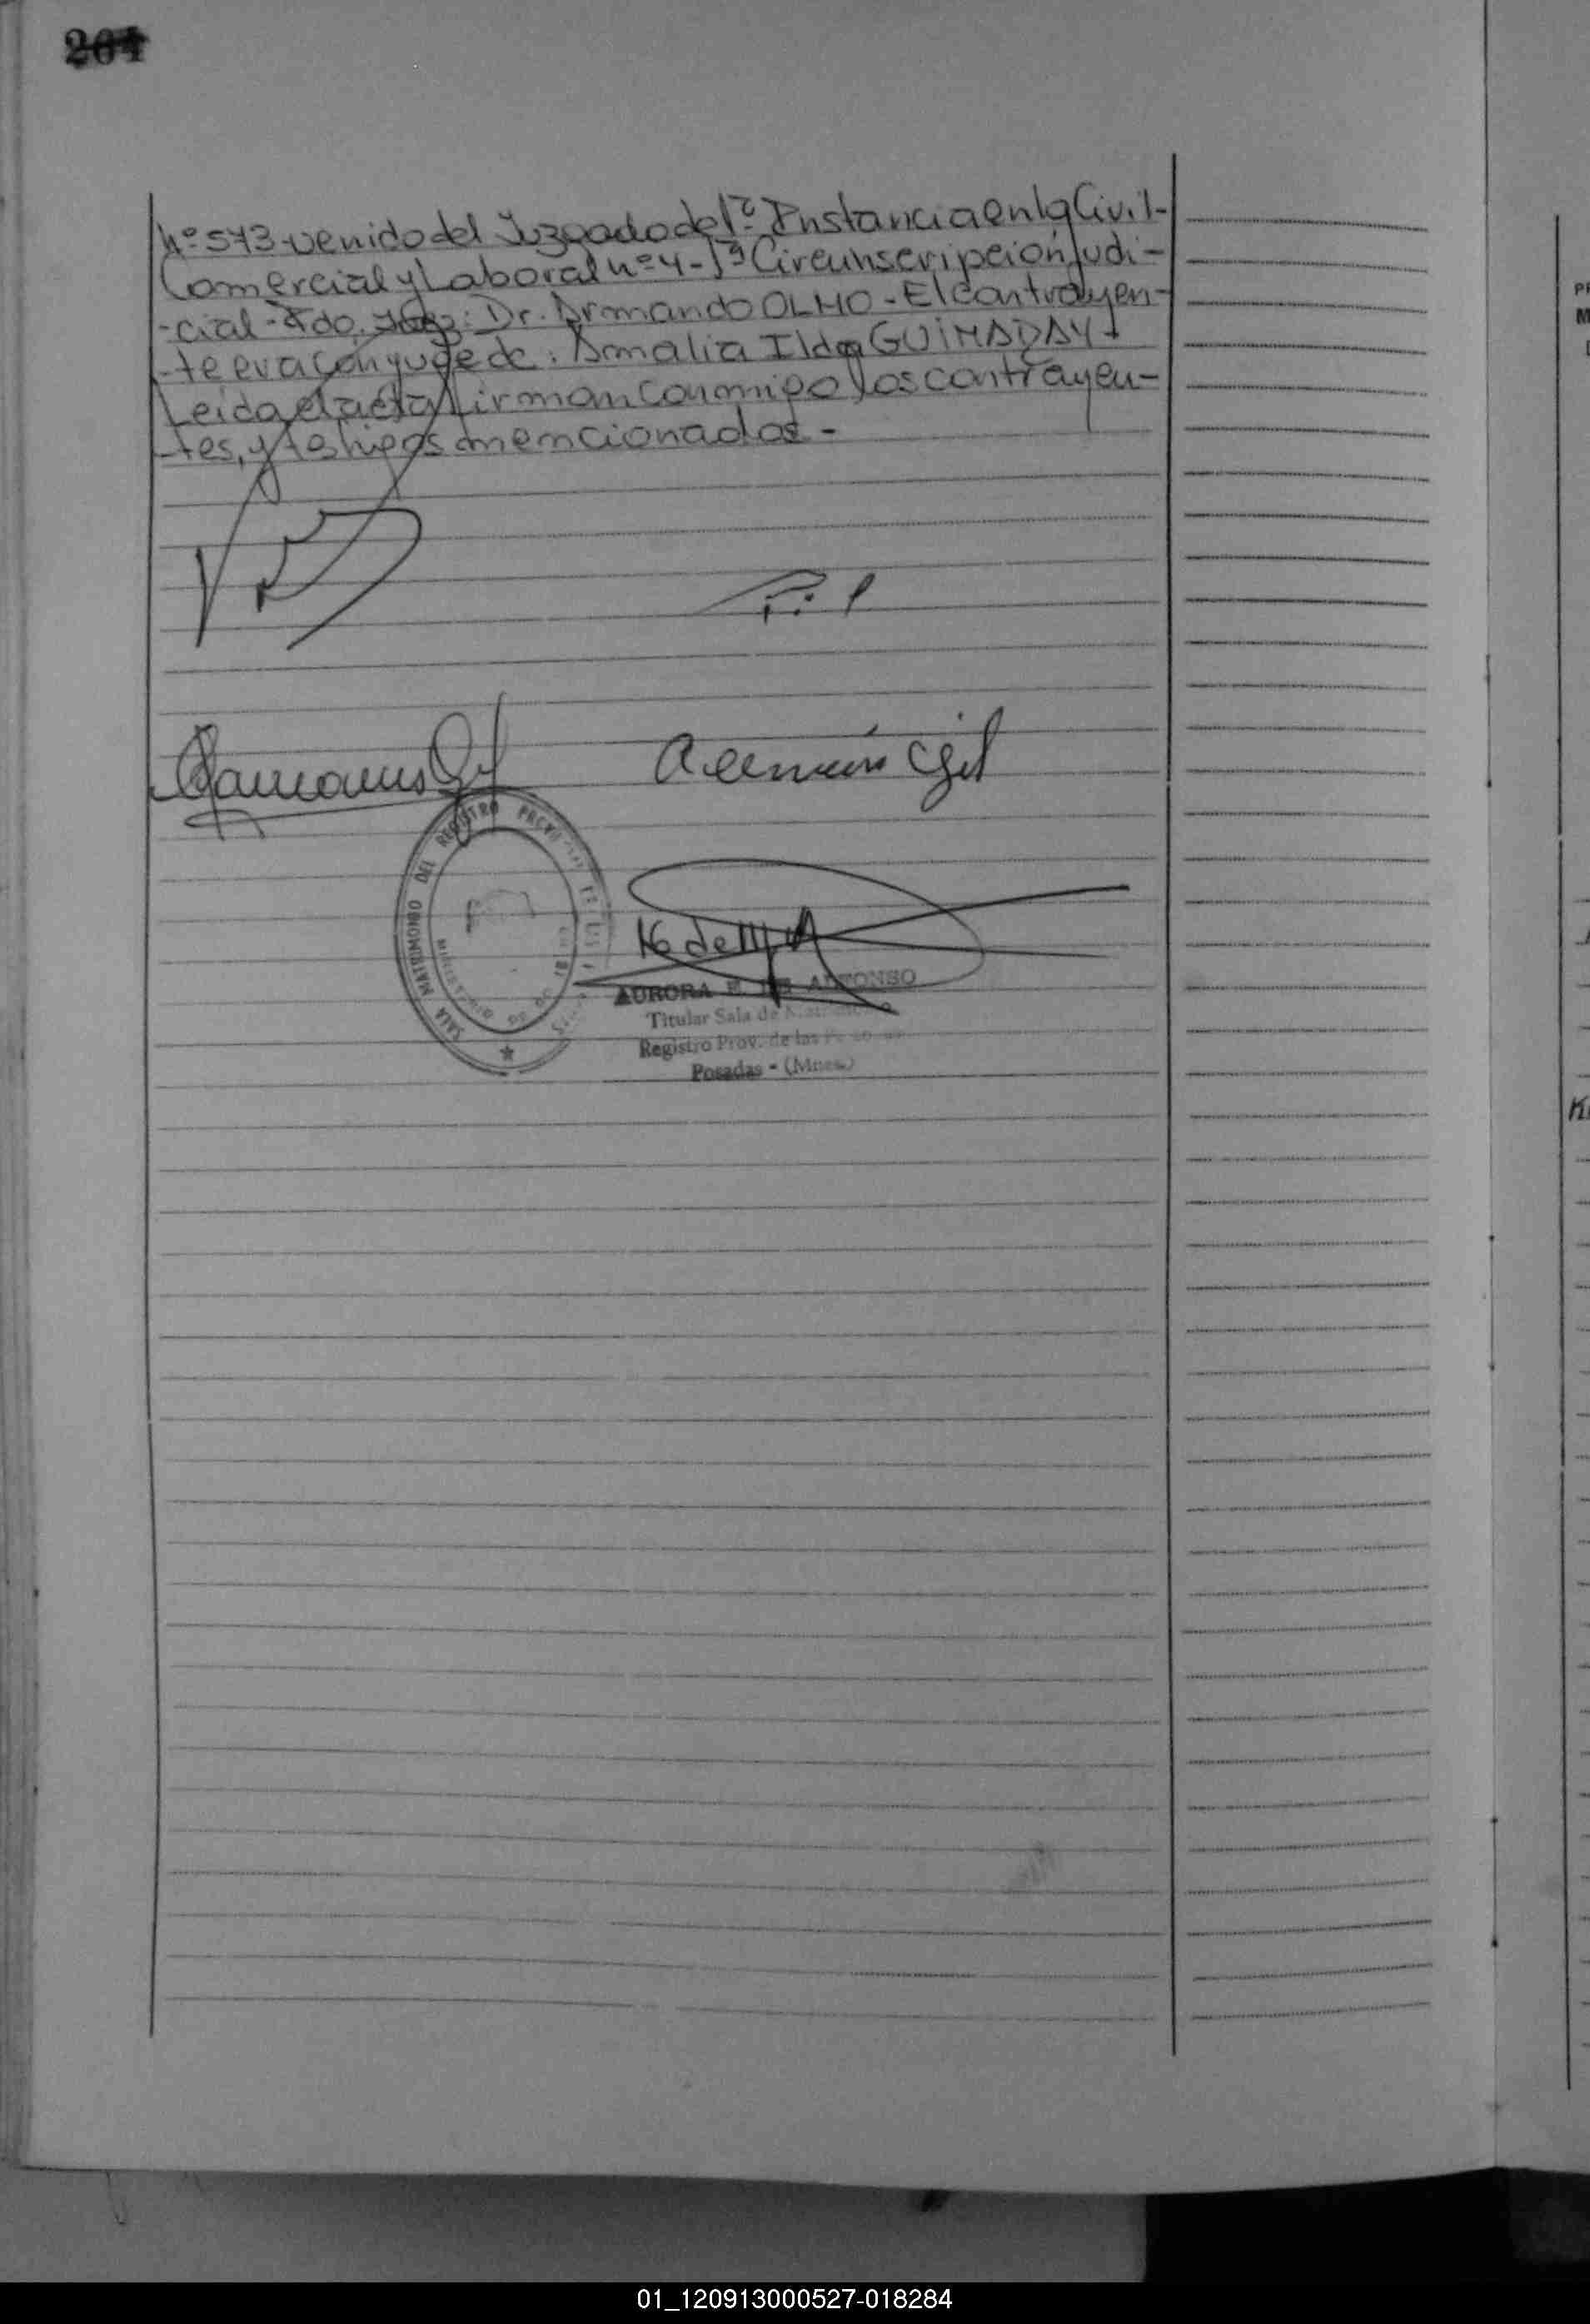 264
Nº 573 venido del Juzgado de 1º Instancia en lo Civil-
Comercial y Laboral nº 4 - 1ª Circunscripcion Judi-
-cial - Fdo. Juez: Dr. Armando OLMO - El contrayen-
-te era conyuge de: Amalia Ilda GUIMARAY -
Leida el acta firman conmigo los contrayen-
-tes, y testigos mencionados -
Gil
SALA MATRIMONIO DEL REGISTRO
16 de
AURORA ALFONSO
Titular Sala de
Registro Prov. de las
Posadas - (Mnes.)
01_120913000527-018284